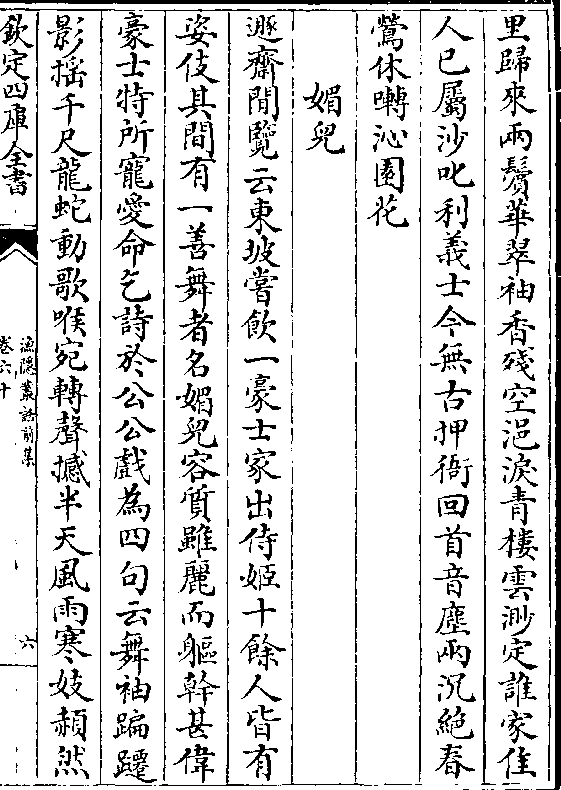 里歸來兩鬢華翠袖香殘空浥淚青樓雲渺定誰家佳
人已屬沙叱利義士今無古押衙回首音塵兩沉絶春
鶯休囀沁園花
媚兒
遯齋閒覽云東坡嘗飲一豪士家出侍姬十餘人皆有
姿伎其間有一善舞者名媚兒容質雖麗而軀幹甚偉
豪士特所寵愛命乞詩於公公戲為四句云舞袖蹁躚
影揺千尺龍蛇動歌喉宛轉聲撼半天風雨寒妓頳然
欽定四庫全書
漁隱叢話前集
卷六十
六